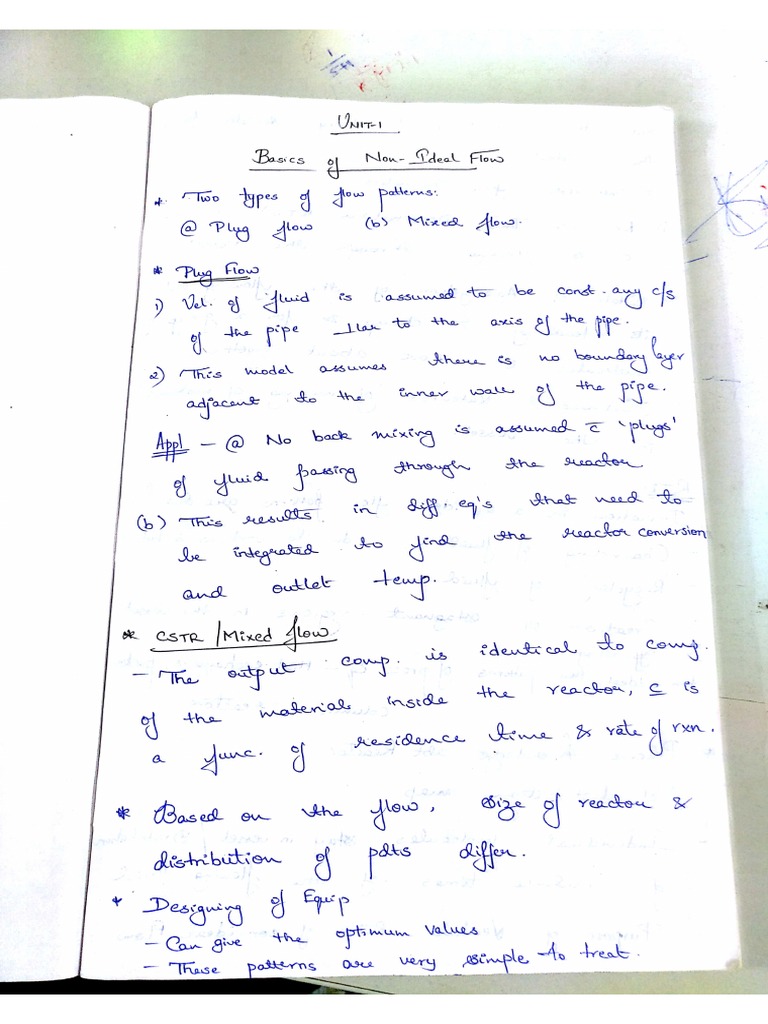 UNIT-1
Basics of Non-Ideal Flow
* Two types of flow patterns:
(a) Plug flow (b) Mixed flow.
* Plug Flow
1) Vel. of fluid is assumed to be const. any c/s
of the pipe ⊥lar to the axis of the pipe.
2) This model assumes there is no boundary layer
adjacent to the inner wall of the pipe.
Appl - (a) No back mixing is assumed c̄ 'plugs'
of fluid passing through the reactor
(b) This results in diff. eq's that need to
be integrated to find the reactor conversion
and outlet temp.
* CSTR / Mixed flow
- The output comp. is identical to comp.
of the material inside the reactor, c is
a func. of residence time & rate of rxn.
* Based on the flow, size of reactor &
distribution of pdts differ.
* Designing of Equip
- Can give the optimum values
- These patterns are very simple to treat.